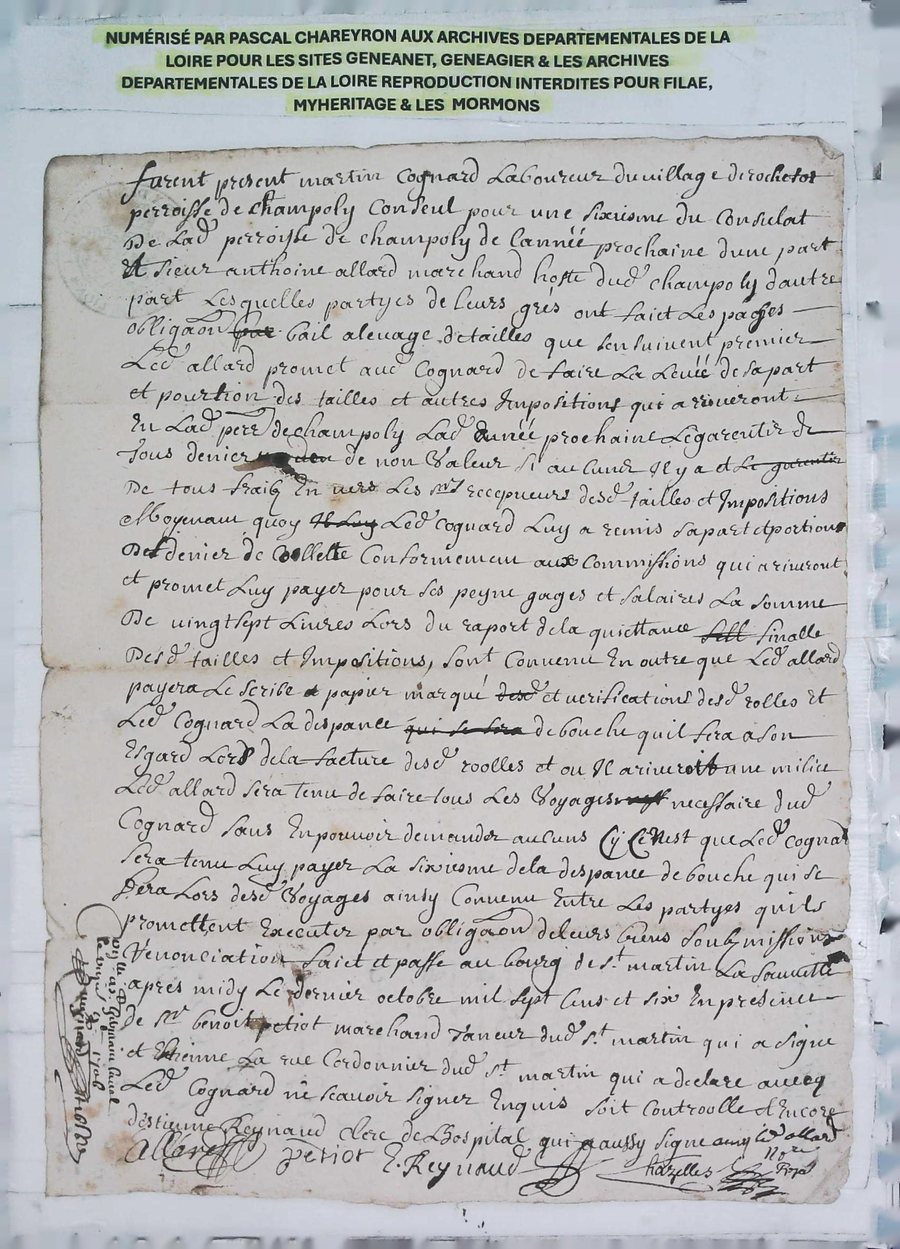 NUMÉRISÉ PAR PASCAL CHAREYRON AUX ARCHIVES DEPARTEMENTALES DE LA
LOIRE POUR LES SITES GENEANET, GENEAGIER & LES ARCHIVES
DEPARTEMENTALES DE LA LOIRE REPRODUCTION INTERDITES POUR FILAE,
MYHERITAGE & LES MORMONS
furent present martin Cognard Laboureur du village de
perroisse de Champoly Conseul pour une sixiesme du Consulat
De Lad perroisse de champoly de Lannéé prochaine dune part
Et Sieur anthoine allard marchand hoste dud champoly dautre
part Lesquelles partyes de leurs grés ont faict Les paches
obligaon bail a levage detailles que sensuivent premier
Led allard promet aud Cognard de faire La Levéé de sa part
et pourtion des tailles et autres Impositions qui ariveront
En Lad perr de champoly Lad Annéé prochaine Le garentir de
Tous denier de non Valleur si aucune Il y a et Le garentir
De tous fraig En vers Les Srs recepveurs desd tailles et Impositions
Moyenant quoy Il Luy Led Cognard Luy a remis sa part et portion
Des denier de Collette Conformement aux Commissions qui ariveront
et promet Luy payer pour ses peyne gages et salaires La somme
De vingt sept Livres Lors du raport dela quiettance finalle
Desd tailles et Impositions, sont Convenu En outre que Led allard
payera Le scribe papier marqué desd et verifications desd rolles Et
Led Cognard La dispance qui se fera de bouche quil fera a son
Esgard Lors dela facture desd roolles et ou Il ariveroit une milice
Led allard sera tenu de faire tous Les Voyages necessaire dud
Cognard sans En pouvoir demander aucuns Cy Ce nest que Led Cognard
sera tenu Luy payer La sixiesme dela despance de bouche qui se
fera Lors desd Voyages ainsy Convenu Entre Les partyes quils
promettent Executer par obligaon deleurs biens soubmissions
renonciation faict et passé au bourg de St martin La Sauvette
apres midy Le dernier octobre mil sept Cens et six En presence
de Sr benoit petiot marchand Taneur dud St martin qui a signe
et Etienne La rue Cordonnier dud St martin qui a declare avecq
Led Cognard ne scavoir signer Enquis soit Controolle et Encore
destienne Reynaud clerc de Lhospital qui a aussy signe avecq led allard
Allard petiot E. Reynaud Chazelles Nore Royal